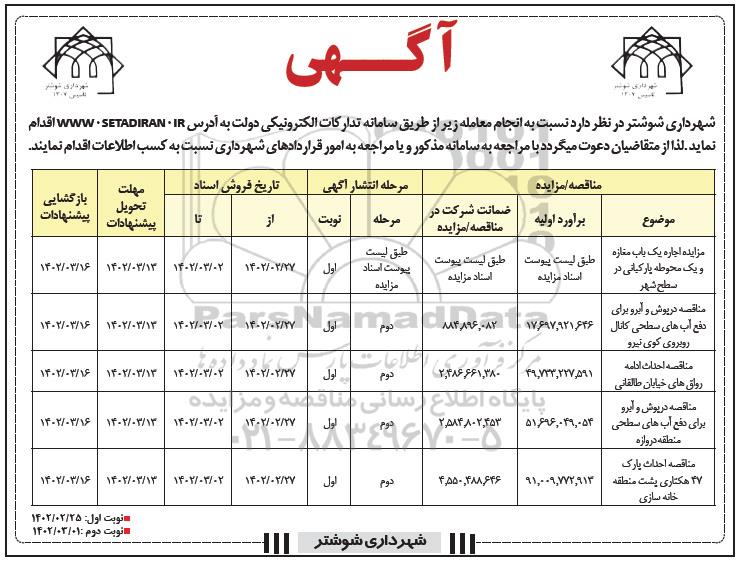 آگهی
شهرداری شوشتر
تاسیس ۱۳۰۲
شهرداری شوشتر
تاسیس ۱۳۰۲
شهرداری شوشتر در نظر دارد نسبت به انجام معامله زیر از طریق سامانه تدارکات الکترونیکی دولت به آدرس WWW۰SETADIRAN۰IR اقدام
نماید.لذا از متقاضیان دعوت میگردد با مراجعه به سامانه مذکور و یا مراجعه به امور قراردادهای شهرداری نسبت به کسب اطلاعات اقدام نمایند.
مناقصه/مزایده مرحله انتشار آگهی تاریخ فروش اسناد مهلت تحویل پیشنهادات بازگشایی پیشنهادات
موضوع برآورد اولیه ضمانت شرکت در مناقصه/مزایده مرحله نوبت از تا
مزایده اجاره یک باب مغازه
و یک محوطه پارکبانی در
سطح شهر
طبق لیست پیوست
اسناد مزایده
طبق لیست پیوست
اسناد مزایده
طبق لیست
پیوست اسناد
مزایده
اول ۱۴۰۲/۰۲/۲۷ ۱۴۰۲/۰۳/۰۲ ۱۴۰۲/۰۳/۱۳ ۱۴۰۲/۰۳/۱۶
مناقصه درپوش و آبرو برای
دفع آب های سطحی کانال
روبروی کوی نیرو
۱۷,۶۹۷,۹۲۱,۶۴۶ ۸۸۴,۸۹۶,۰۸۲ دوم اول ۱۴۰۲/۰۲/۲۷ ۱۴۰۲/۰۳/۰۲ ۱۴۰۲/۰۳/۱۳ ۱۴۰۲/۰۳/۱۶
مناقصه احداث ادامه
رواق های خیابان طالقانی
۴۹,۷۳۳,۲۲۷,۵۹۱ ۲,۴۸۶,۶۶۱,۳۸۰ دوم اول ۱۴۰۲/۰۲/۲۷ ۱۴۰۲/۰۳/۰۲ ۱۴۰۲/۰۳/۱۳ ۱۴۰۲/۰۳/۱۶
مناقصه درپوش و آبرو
برای دفع آب های سطحی
منطقه دروازه
۵۱,۶۹۶,۰۴۹,۰۵۴ ۲,۵۸۴,۸۰۲,۴۵۳ دوم اول ۱۴۰۲/۰۲/۲۷ ۱۴۰۲/۰۳/۰۲ ۱۴۰۲/۰۳/۱۳ ۱۴۰۲/۰۳/۱۶
مناقصه احداث پارک
۴۷ هکتاری پشت منطقه
خانه سازی
۹۱,۰۰۹,۷۷۲,۹۱۳ ۴,۵۵۰,۴۸۸,۶۴۶ دوم اول ۱۴۰۲/۰۲/۲۷ ۱۴۰۲/۰۳/۰۲ ۱۴۰۲/۰۳/۱۳ ۱۴۰۲/۰۳/۱۶
ParsNamadData
مرکز فرآوری اطلاعات پارس نماد داده ها
پایگاه اطلاع رسانی مناقصه و مزایده
۰۲۱-۸۸۳۴۹۶۷۰-۵
نوبت اول: ۱۴۰۲/۰۲/۲۵
نوبت دوم :۱۴۰۲/۰۳/۰۱
شهرداری شوشتر